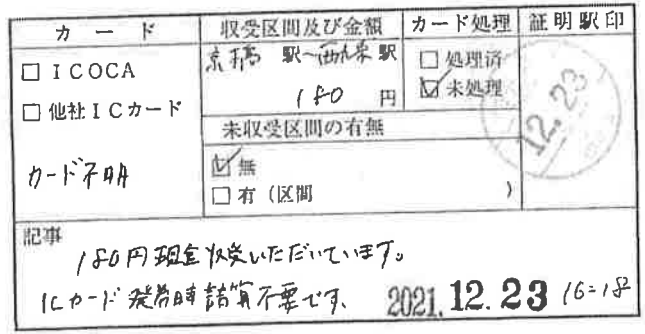 カード 収受区間及び金額 カード処理 証明駅印
□ ICOCA
□ 他社ICカード
カード不明
京橋 駅～西九条 駅
180 円
未収受区間の有無
☑ 無
□ 有（区間 ）
□ 処理済
☑ 未処理
12.23
記事
180円現金収受いただいています。
ICカード発券時請算不要です。
2021.12.23 16:18